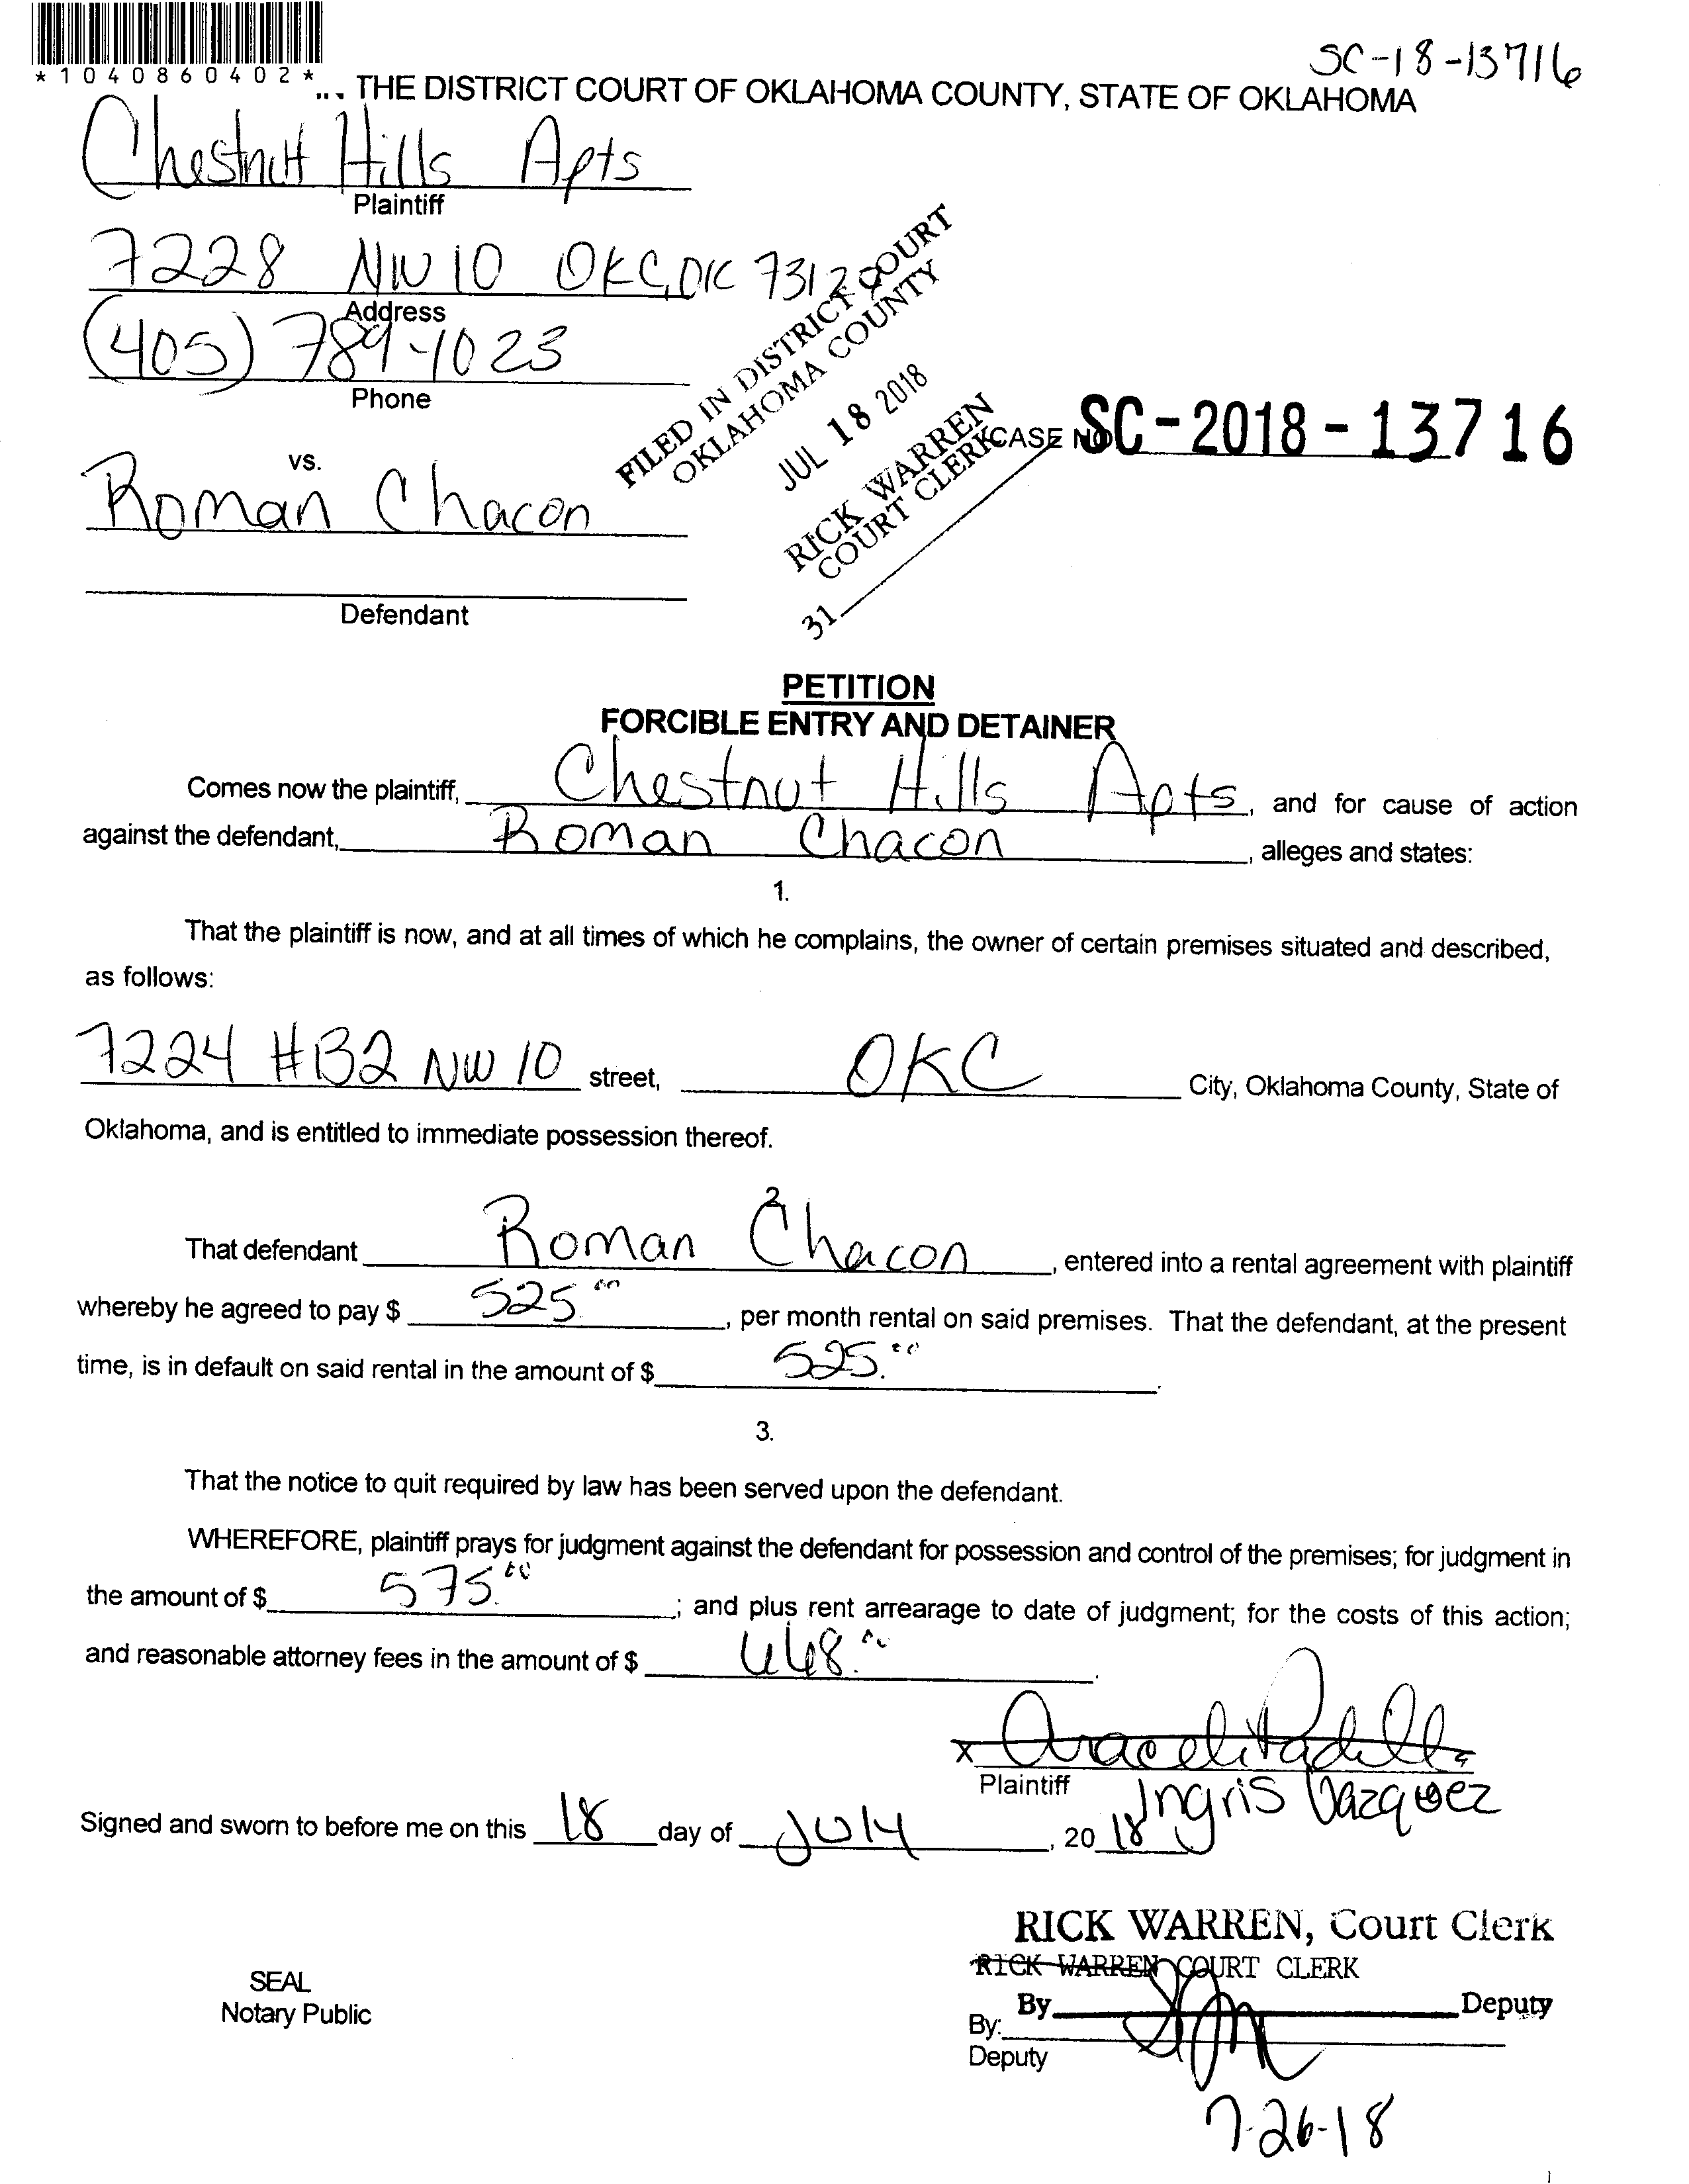 SC-18-13716
*1040860402*
THE DISTRICT COURT OF OKLAHOMA COUNTY, STATE OF OKLAHOMA
Chestnut Hills Apts
Plaintiff
7228 NW 10 OKC, OK 7312
Address
(405) 789-1023
Phone
FILED IN DISTRICT COURT
OKLAHOMA COUNTY
JUL 18 2018
RICK WARREN
COURT CLERK
31
CASE NO SC-2018-13716
vs.
Roman Chacon
Defendant
PETITION
FORCIBLE ENTRY AND DETAINER
Comes now the plaintiff, Chestnut Hills Apts, and for cause of action
against the defendant, Roman Chacon, alleges and states:
1.
That the plaintiff is now, and at all times of which he complains, the owner of certain premises situated and described,
as follows:
7224 #B2 NW 10 street, OKC City, Oklahoma County, State of
Oklahoma, and is entitled to immediate possession thereof.
2
That defendant Roman Chacon, entered into a rental agreement with plaintiff
whereby he agreed to pay $ 525.00, per month rental on said premises. That the defendant, at the present
time, is in default on said rental in the amount of $ 525.00.
3.
That the notice to quit required by law has been served upon the defendant.
WHEREFORE, plaintiff prays for judgment against the defendant for possession and control of the premises; for judgment in
the amount of $ 575.00; and plus rent arrearage to date of judgment; for the costs of this action;
and reasonable attorney fees in the amount of $ .
x Araceli Padilla
Plaintiff
Ingris Vazquez
Signed and sworn to before me on this 18 day of July, 20 18
RICK WARREN, Court Clerk
RICK WARREN COURT CLERK
By Deputy
By:
Deputy
SEAL
Notary Public
7-26-18